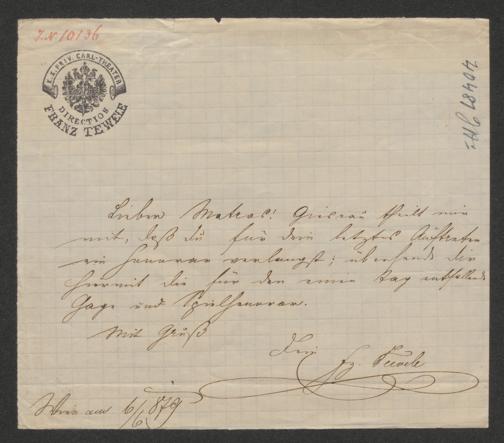 J.N. 10136
K. K. PRIV. CARL-THEATER
DIRECTION
FRANZ TEWELE
Lieber Matras! Grisrau theilt mir
mit, daß du für dein letztes Auftreten
ein Honorar verlangst; übersende dir
hiermit die für den einen Tag entfallende
Gage und Spielhonorar.
Mit Gruß
Dein
Fz. Tewele
Wien am 6/6 1879